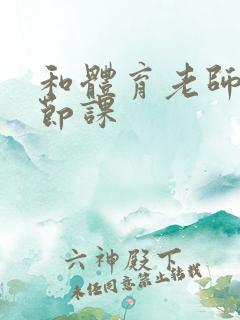 和體育老師
節課
六神殿下
未經同意禁止轉載